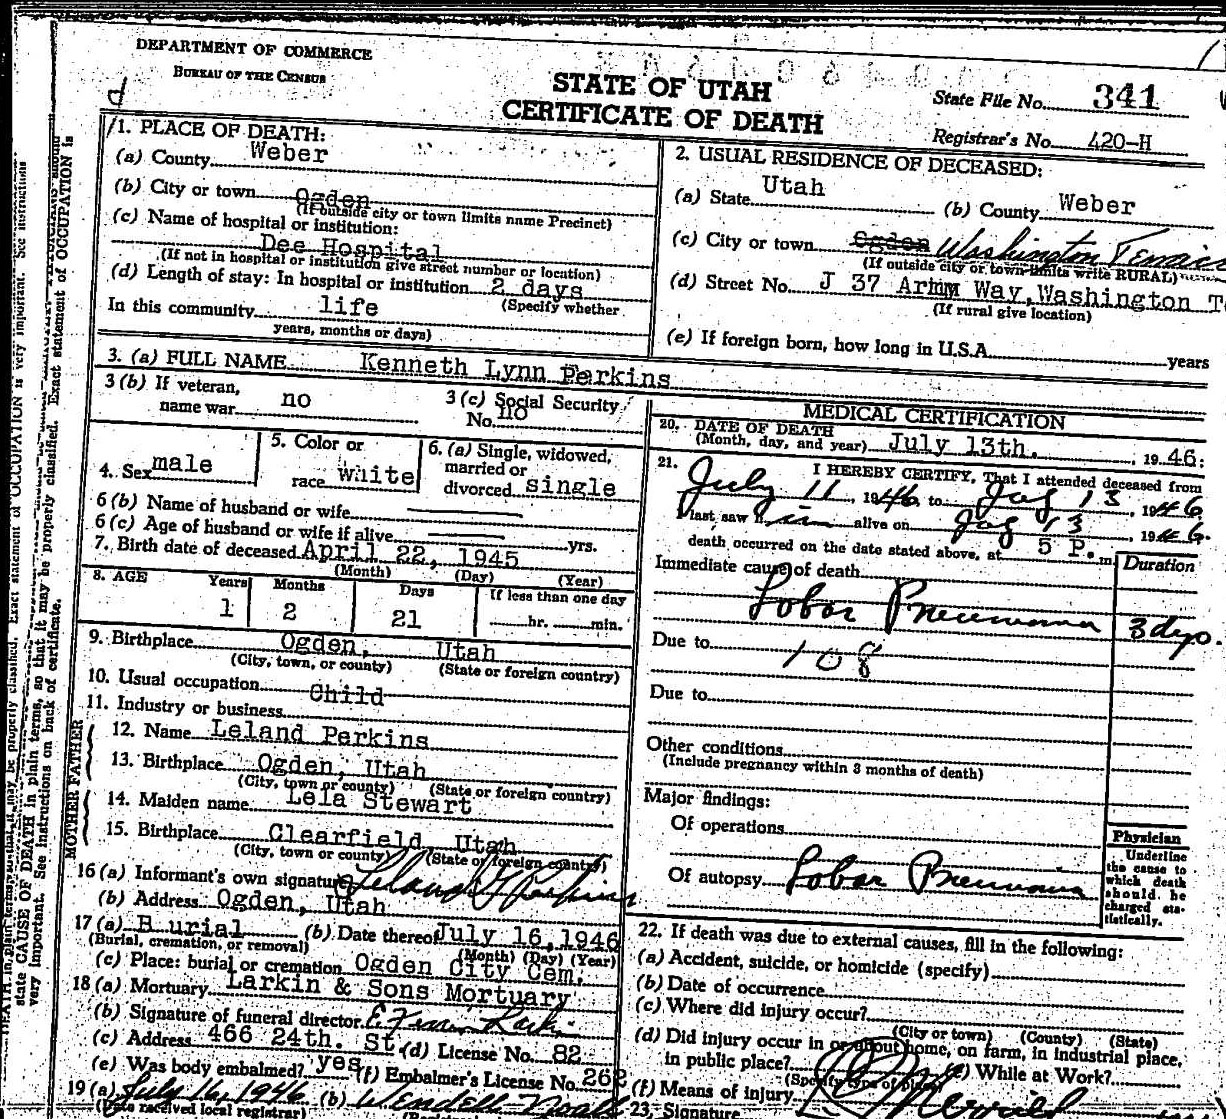 DEPARTMENT OF COMMERCE
BUREAU OF THE CENSUS
d
STATE OF UTAH
CERTIFICATE OF DEATH
State File No. 341
Registrar's No. 420-H
1. PLACE OF DEATH:
(a) County Weber
(b) City or town Ogden
(If outside city or town limits name Precinct)
(c) Name of hospital or institution:
Dee Hospital
(If not in hospital or institution give street number or location)
(d) Length of stay: In hospital or institution 2 days
(Specify whether
In this community life
years, months or days)
2. USUAL RESIDENCE OF DECEASED:
(a) State Utah (b) County Weber
(c) City or town Ogden Washington Terrace
(If outside city or town limits write RURAL)
(d) Street No. J 37 Arhm Way, Washington T
(If rural give location)
(e) If foreign born, how long in U.S.A. years
3. (a) FULL NAME Kenneth Lynn Perkins
3 (b) If veteran, name war no
3 (c) Social Security No. no
4. Sex male
5. Color or race white
6. (a) Single, widowed, married or divorced single
6 (b) Name of husband or wife
6 (c) Age of husband or wife if alive yrs.
7. Birth date of deceased April 22, 1945
(Month) (Day) (Year)
8. AGE Years Months Days If less than one day
1 2 21 hr. min.
9. Birthplace Ogden, Utah
(City, town, or county) (State or foreign country)
10. Usual occupation Child
11. Industry or business
FATHER
12. Name Leland Perkins
13. Birthplace Ogden, Utah
(City, town or county) (State or foreign country)
MOTHER
14. Maiden name Lela Stewart
15. Birthplace Clearfield Utah
(City, town or county) (State or foreign country)
16 (a) Informant's own signature Leland Perkins
(b) Address Ogden, Utah
17 (a) Burial (b) Date thereof July 16, 1946
(Burial, cremation, or removal) (Month) (Day) (Year)
(c) Place: burial or cremation Ogden City Cem.
18 (a) Mortuary Larkin & Sons Mortuary
(b) Signature of funeral director
(c) Address 466 24th. St. (d) License No. 82
(e) Was body embalmed? yes (f) Embalmer's License No. 262
19 (a) July 16, 1946 (b) Wendell
(Date received local registrar)
MEDICAL CERTIFICATION
20. DATE OF DEATH
(Month, day, and year) July 13th. , 19 46:
21. I HEREBY CERTIFY, That I attended deceased from
July 11, 1946 to July 13, 1946
I last saw him alive on July 13, 1946.
death occurred on the date stated above, at 5 P. m
Immediate cause of death Duration
Lobar Pneumonia 3 dys.
Due to 108
Due to
Other conditions
(Include pregnancy within 3 months of death)
Major findings:
Of operations
Of autopsy Lobar Pneumonia
Physician
Underline the cause to which death should be charged statistically.
22. If death was due to external causes, fill in the following:
(a) Accident, suicide, or homicide (specify)
(b) Date of occurrence
(c) Where did injury occur?
(City or town) (County) (State)
(d) Did injury occur in or about home, on farm, in industrial place,
in public place? (e) While at Work?
(Specify type of place)
(f) Means of injury
23. Signature
state CAUSE OF DEATH in plain terms, so that it may be properly classified. Exact statement of OCCUPATION is
very important. See instructions on back of certificate.